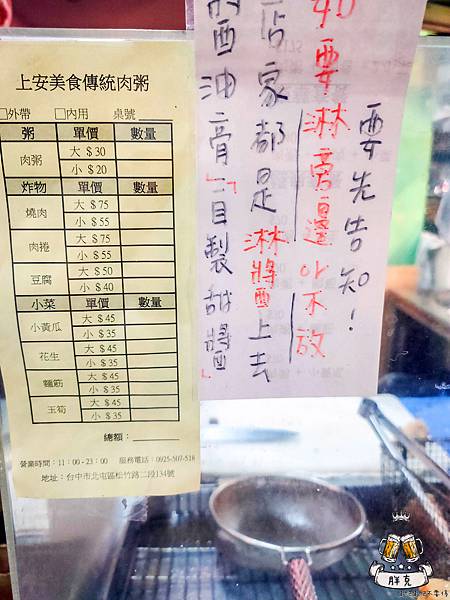 上安美食傳統肉粥
□外帶 □內用 桌號
粥 單價 數量
肉粥 大 $30
小 $20
炸物 單價 數量
燒肉 大 $75
小 $55
肉捲 大 $75
小 $55
豆腐 大 $50
小 $40
小菜 單價 數量
小黃瓜 大 $45
小 $35
花生 大 $45
小 $35
麵筋 大 $45
小 $35
玉筍 大 $45
小 $35
總額：
營業時間：11：00-23：00 服務電話：0925-507-518
地址：台中市北屯區松竹路二段134號
要先告知！
要淋旁邊or不放
店家都是淋醬上去
醬油膏「自製甜醬」
胖克